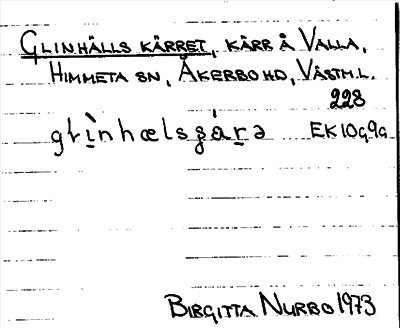 GLINHÄLLS KÄRRET, KÄRR Å VALLA,
HIMMETA SN, ÅKERBO HD, VÄSTM.L.
228
glìnhælsʂárə EK10G9G
BIRGITTA NURBO 1973